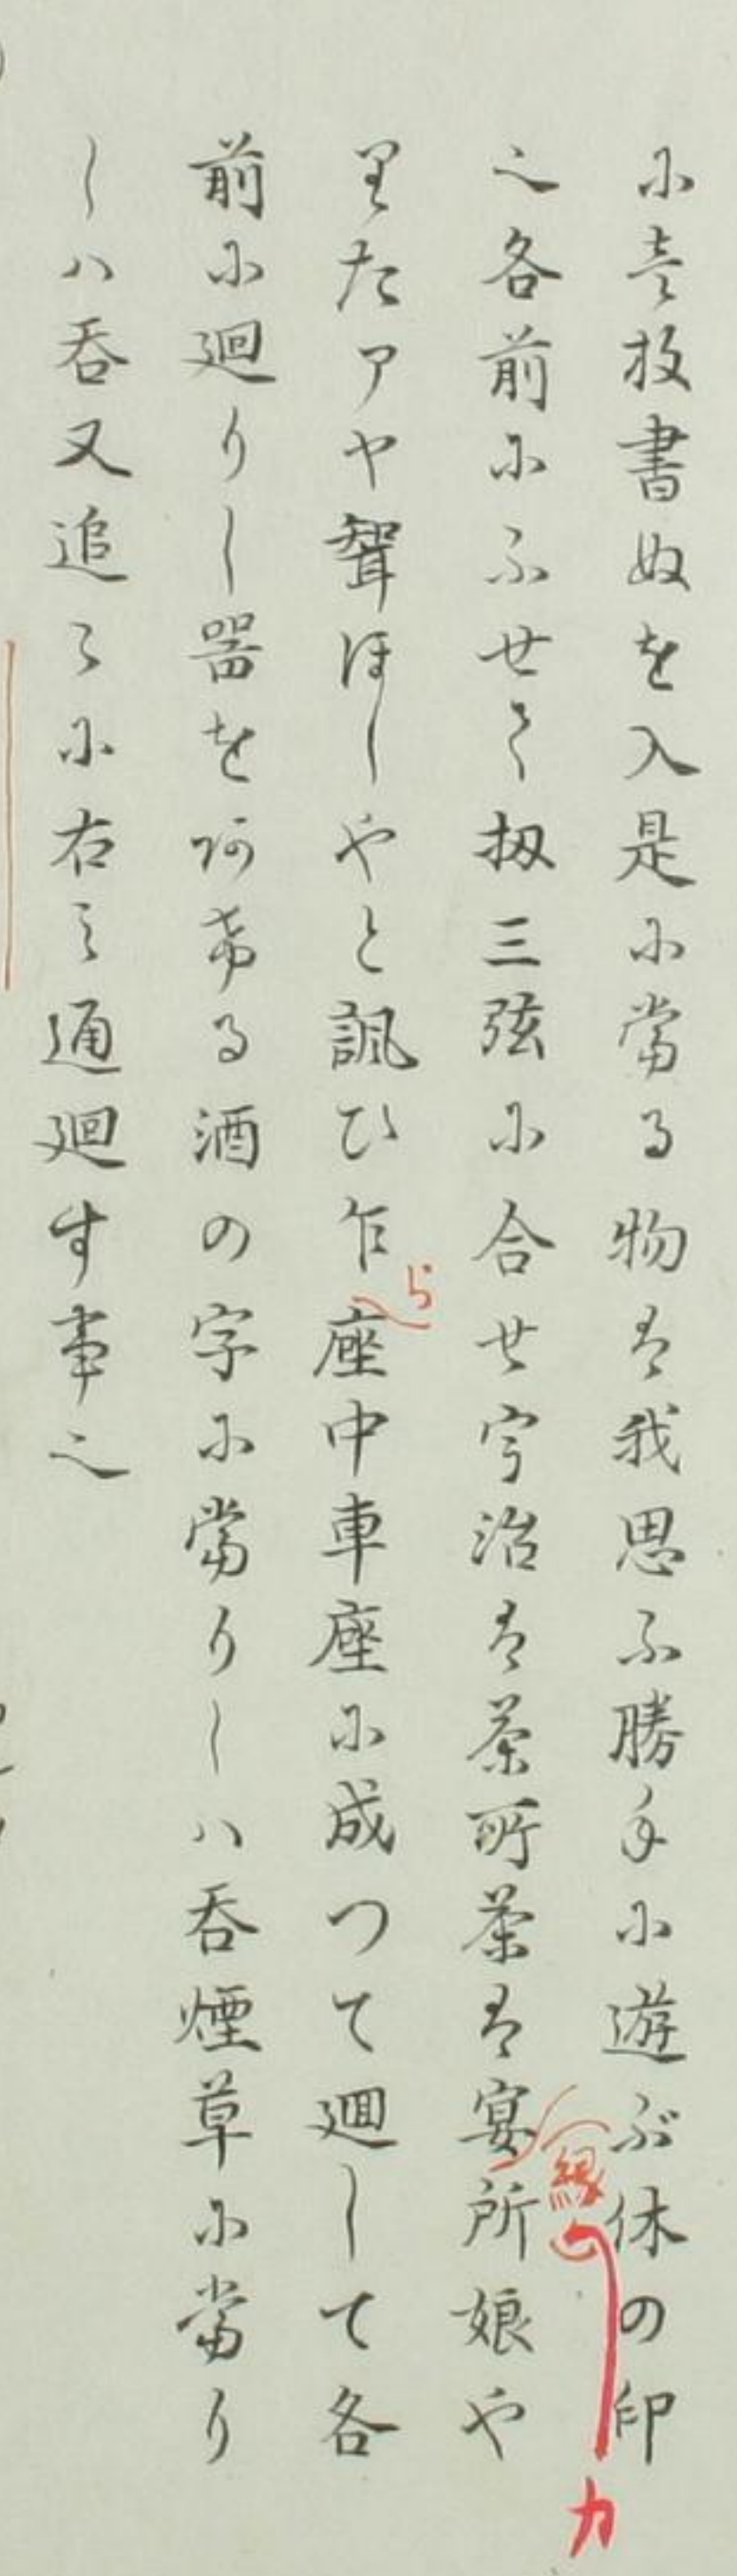 に壱枚書ぬを入是に當る物は我思ふ勝手に遊ぶ休の印
也各前にふせて扨三弦に合せ宇治は茶所茶は宴所娘や
(縁)カ
りたアヤ聟ほしやと諷ひ乍座中車座に成つて廻して各
ら
前に廻りし器を阿希る酒の字に當りしハ呑煙草に當り
しハ呑又追々に右之通廻す事也